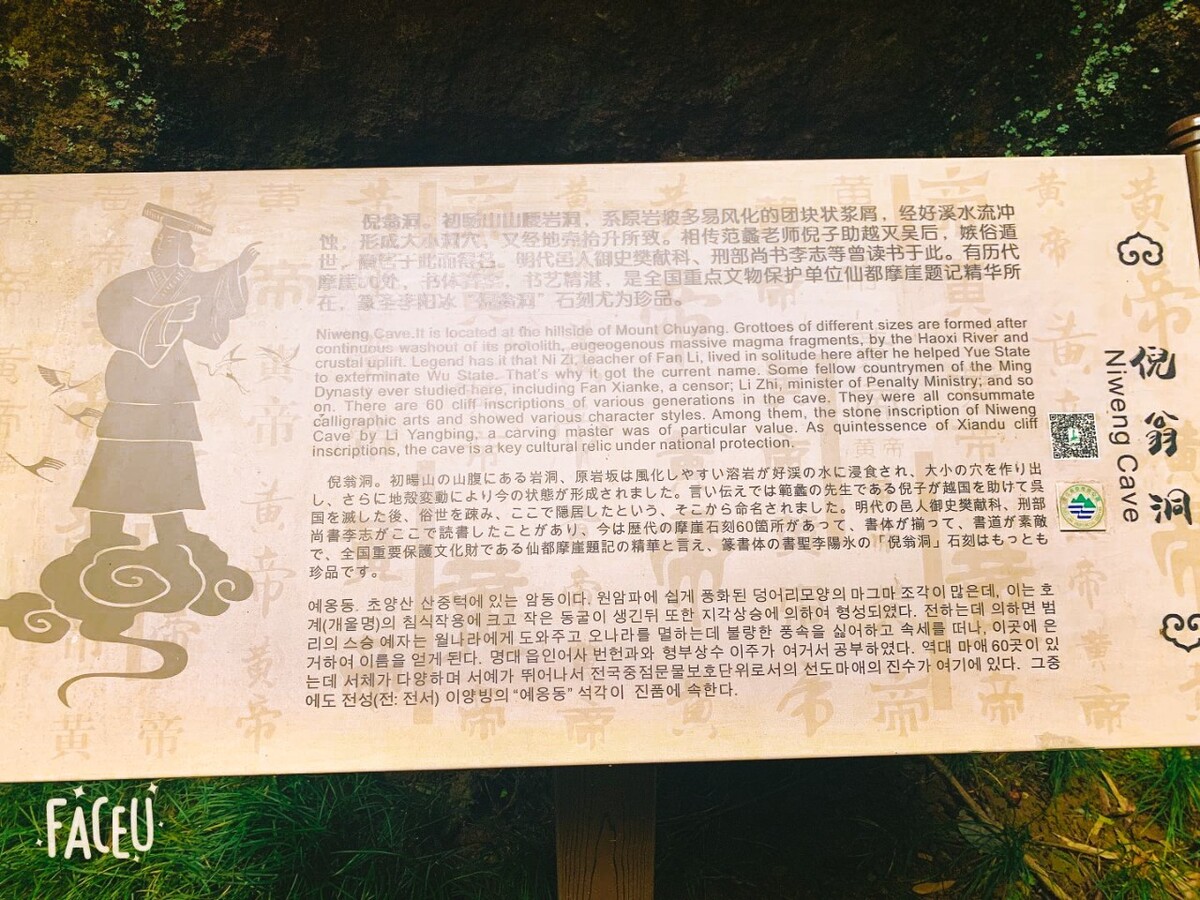 倪翁洞。初暘山山腰岩洞，系原岩坡多易风化的团块状浆屑，经好溪水流冲
蚀，形成大小洞穴，又经地壳抬升所致。相传范蠡老师倪子助越灭吴后，嫉俗遁
世，隐居于此而得名。明代邑人御史樊献科、刑部尚书李志等曾读书于此。有历代
摩崖 处，书体 ，书艺精湛，是全国重点文物保护单位仙都摩崖题记精华所
在，篆圣李阳冰“倪翁洞”石刻尤为珍品。
Niweng Cave.It is located at the hillside of Mount Chuyang. Grottoes of different sizes are formed after
continuous washout of its protolith, eugeogenous massive magma fragments, by the Haoxi River and
crustal uplift. Legend has it that Ni Zi, teacher of Fan Li, lived in solitude here after he helped Yue State
to exterminate Wu State. That's why it got the current name. Some fellow countrymen of the Ming
Dynasty ever studied here, including Fan Xianke, a censor; Li Zhi, minister of Penalty Ministry; and so
on. There are 60 cliff inscriptions of various generations in the cave. They were all consummate
calligraphic arts and showed various character styles. Among them, the stone inscription of Niweng
Cave by Li Yangbing, a carving master was of particular value. As quintessence of Xiandu cliff
inscriptions, the cave is a key cultural relic under national protection.
倪翁洞。初暘山の山腹にある岩洞、原岩坂は風化しやすい溶岩が好渓の水に浸食され、大小の穴を作り出
し、さらに地殻変動により今の状態が形成されました。言い伝えでは範蠡の先生である倪子が越国を助けて呉
国を滅した後、俗世を疎み、ここで隠居したという、そこから命名されました。明代の邑人御史樊献科、刑部
尚書李志がここで読書したことがあり、今は歴代の摩崖石刻60箇所があって、書体が揃って、書道が素敵
で、全国重要保護文化財である仙都摩崖題記の精華と言え、篆書体の書聖李陽氷の「倪翁洞」石刻はもっとも
珍品です。
예옹동. 초양산 산중턱에 있는 암동이다. 원암파에 쉽게 풍화된 덩어리모양의 마그마 조각이 많은데, 이는 호
계(개울명)의 침식작용에 크고 작은 동굴이 생긴뒤 또한 지각상승에 의하여 형성되였다. 전하는데 의하면 범
리의 스승 예자는 월나라에게 도와주고 오나라를 멸하는데 불량한 풍속을 싫어하고 속세를 떠나, 이곳에 은
거하여 이름을 얻게 된다. 명대 읍인어사 번헌과와 형부상수 이주가 여거서 공부하였다. 역대 마애 60곳이 있
는데 서체가 다양하며 서예가 뛰어나서 전국중점문물보호단위로서의 선도마애의 진수가 여기에 있다. 그중
에도 전성(전: 전서) 이양빙의 “예옹동” 석각이 진품에 속한다.
倪翁洞
Niweng Cave
FACEU